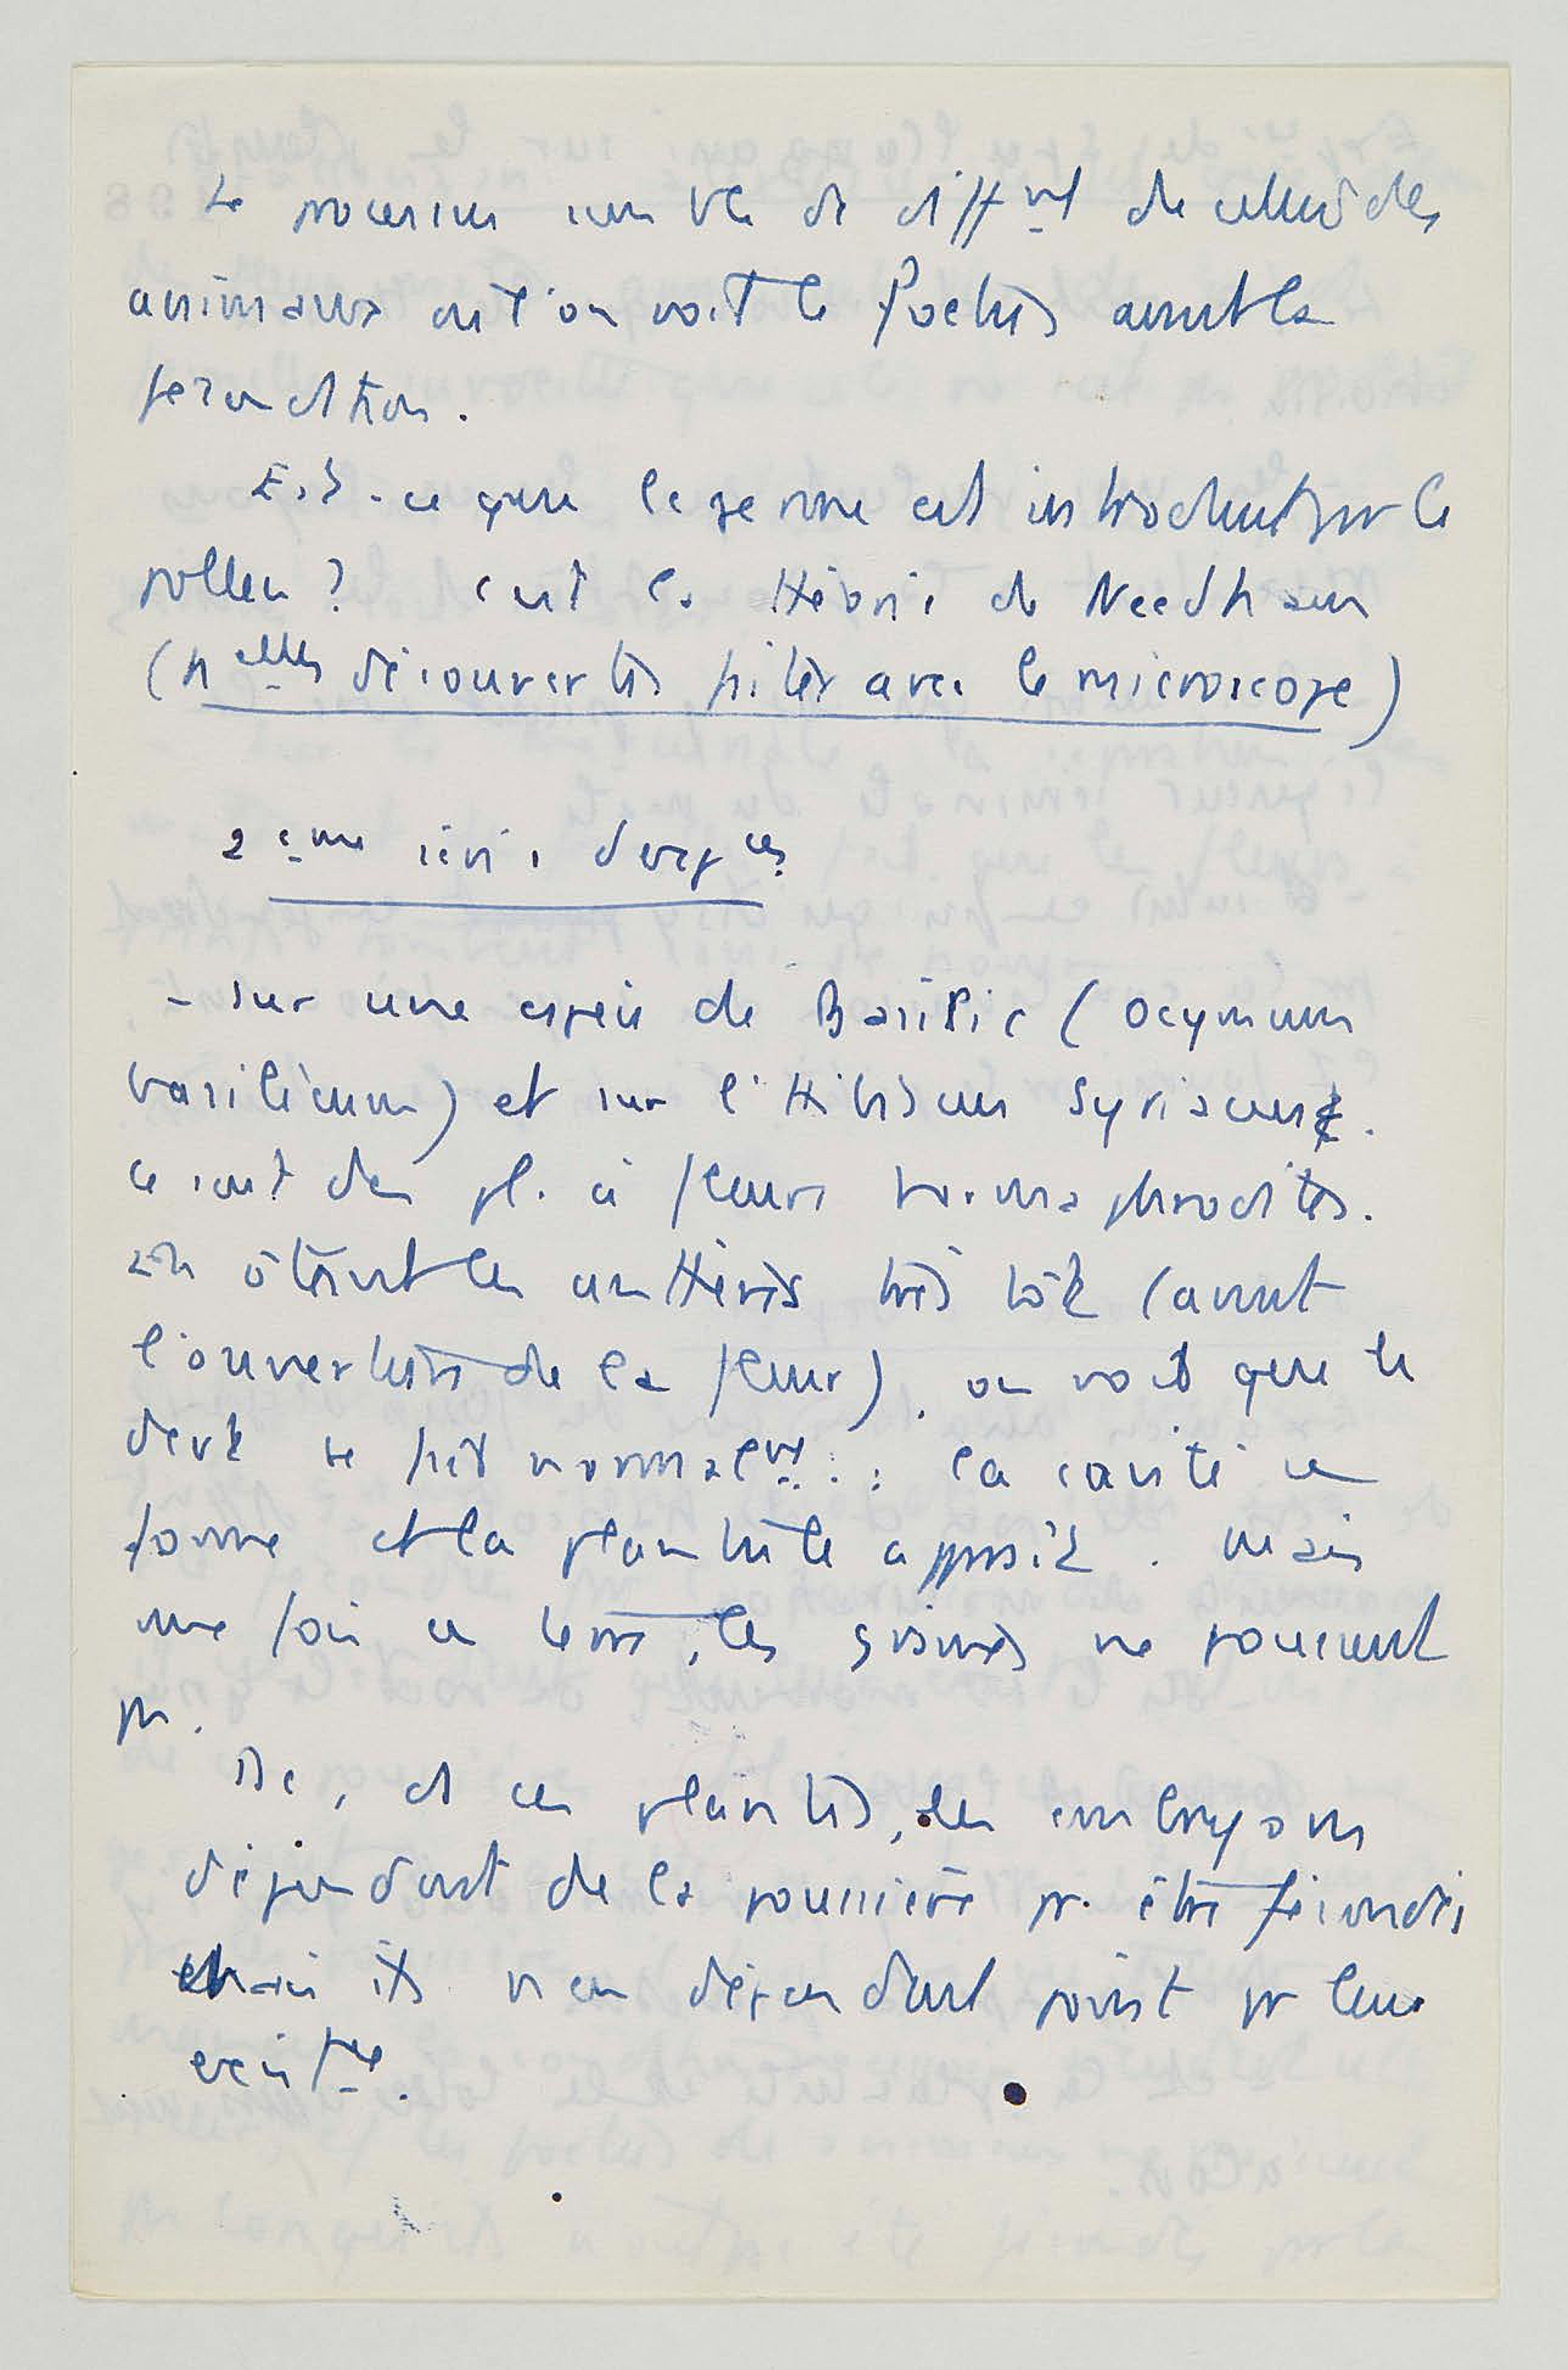 Le processus semble donc diffnt de celui des
animaux où l'on voit le foetus avant la
fécondation.
Est-ce que le germe est introduit par le
pollen ? c'est la théorie de Needham
(nelles découvertes faites avec le microscope)
2ème série d'expces
- sur une espèce de Basilic (Ocymum
basilicum) et sur l'Hibiscus Syriacus.
Ce sont des pl. à fleurs hermaphrodites.
En ôtant les anthères très tôt (avant
l'ouverture de la fleur), on voit que le
devt se fait normalent : la cavité se
forme et la plantule apparaît. Mais
une fois en terre, les graines ne poussent
pas.
Dc, ds ces plantes, les embryons
dépendent de la poussière pr. être fécondés
mais ils n'en dépendent point pr leur
existce.